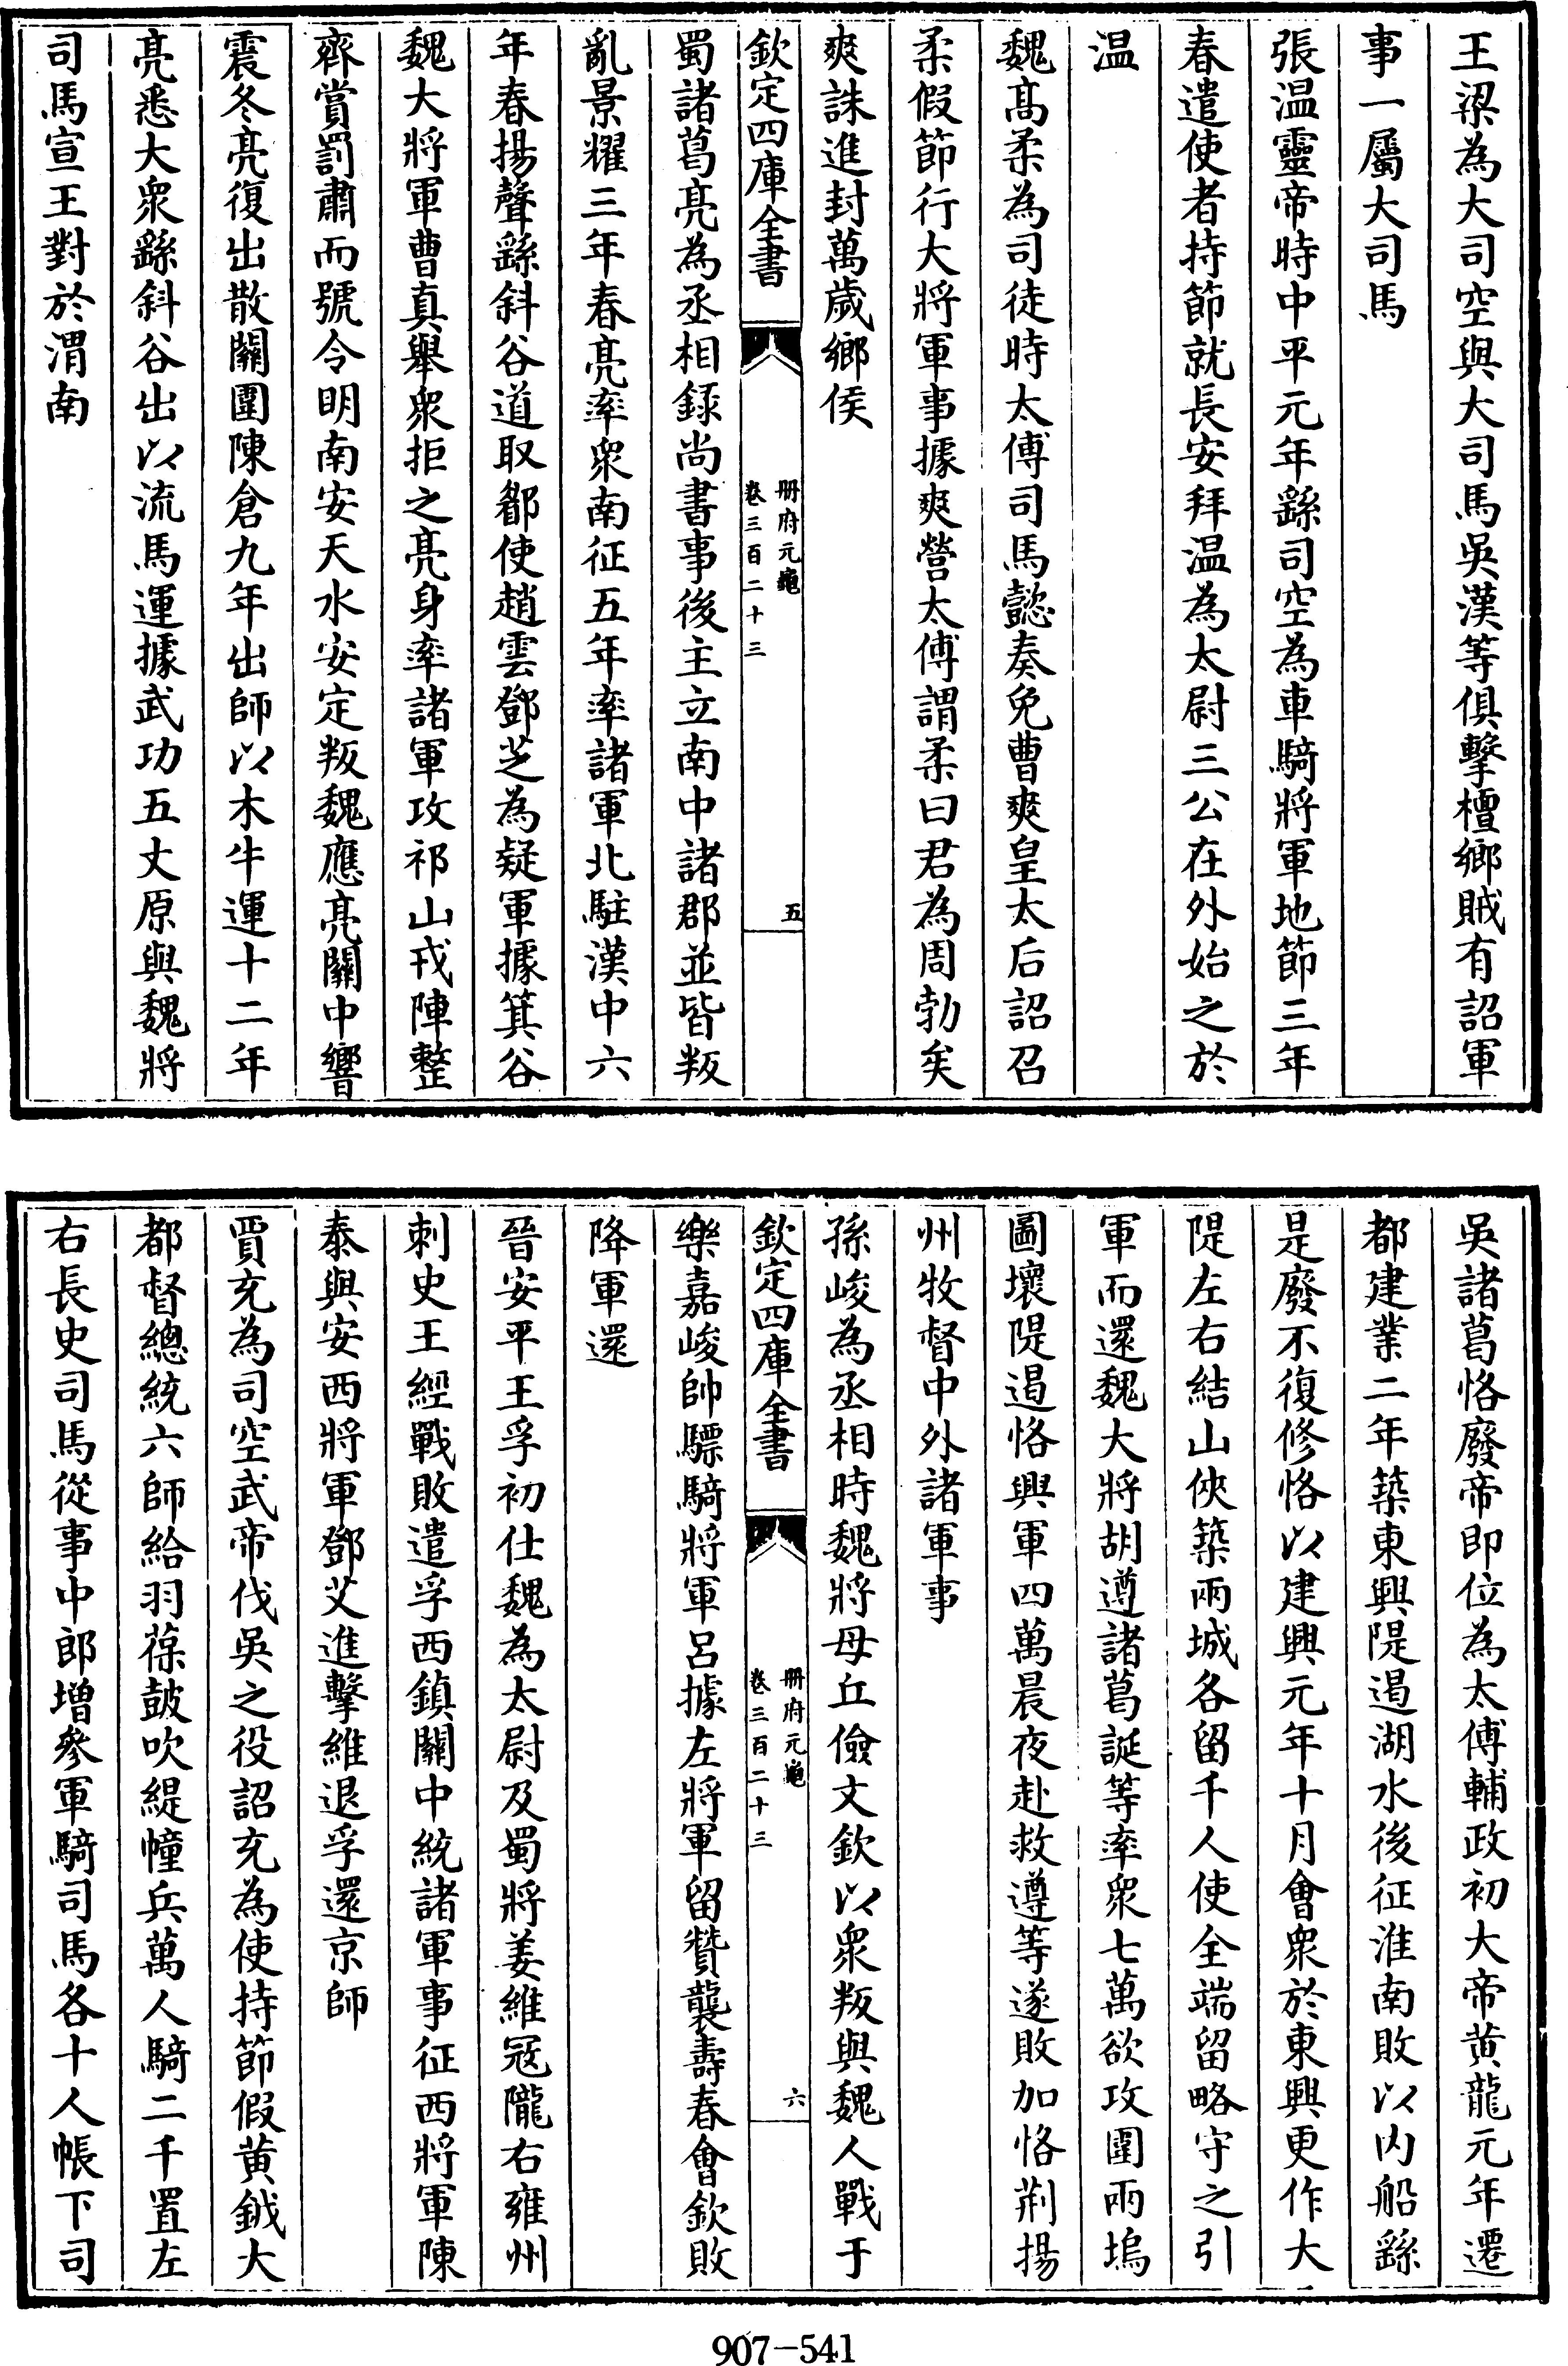 王梁為大司空與大司馬吳漢等俱擊檀鄉賊有詔軍
事一屬大司馬
張温靈帝時中平元年繇司空為車騎將軍地節三年
春遣使者持節就長安拜温為太尉三公在外始之於
温
魏髙柔為司徒時太傅司馬懿奏免曹爽皇太后詔召
柔假節行大將軍事據爽營太傅謂柔曰君為周勃矣
爽誅進封萬歲鄉侯
欽定四庫全書
册府元龜
卷三百二十三
五
蜀諸葛亮為丞相録尚書事後主立南中諸郡並皆叛
亂景耀三年春亮率衆南征五年率諸軍北駐漢中六
年春揚聲繇斜谷道取郿使趙雲鄧芝為疑軍據箕谷
魏大將軍曹真舉衆拒之亮身率諸軍攻祁山戎陣整
齊賞罰肅而號令明南安天水安定叛魏應亮關中響
震冬亮復出散關圍陳倉九年出師以木牛運十二年
亮悉大衆繇斜谷出以流馬運據武功五丈原與魏將
司馬宣王對於渭南
吳諸葛恪廢帝即位為太傅輔政初大帝黄龍元年遷
都建業二年築東興隄遏湖水後征淮南敗以内船繇
是廢不復修恪以建興元年十月會衆於東興更作大
隄左右結山俠築兩城各留千人使全端留略守之引
軍而還魏大將胡遵諸葛誕等率衆七萬欲攻圍兩塢
圖壞隄遏恪興軍四萬晨夜赴救遵等遂敗加恪荆揚
州牧督中外諸軍事
孫峻為丞相時魏將母丘儉文欽以衆叛與魏人戰于
欽定四庫全書
册府元龜
卷三百二十三
六
樂嘉峻帥驃騎將軍呂據左將軍留贊襲壽春會欽敗
降軍還
晉安平王孚初仕魏為太尉及蜀將姜維冦隴右雍州
刺史王經戰敗遣孚西鎮關中統諸軍事征西將軍陳
泰與安西將軍鄧艾進擊維退孚還京師
賈充為司空武帝伐吳之役詔充為使持節假黄鉞大
都督總統六師給羽葆鼓吹緹幢兵萬人騎二千置左
右長史司馬從事中郎增參軍騎司馬各十人帳下司
907-541